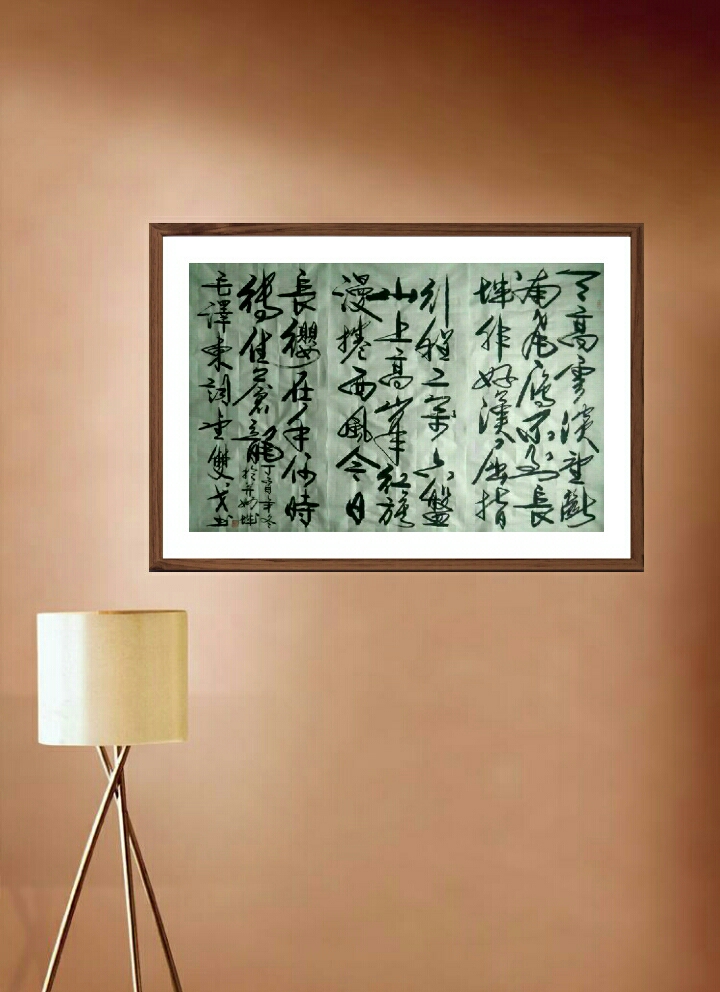 天高雲淡望斷
南飛雁不到長
城非好漢屈指
行程二萬六盤
山上高峰紅旗
漫捲西風今日
長纓在手何時
縛住蒼龍
丁酉年冬
毛澤東詞 雙戈书